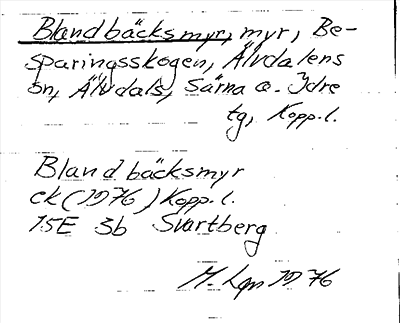 Blandbäcksmyr, myr, Be-
sparingsskogen, Älvdalens
sn, Älvdals, Särna o. Idre
tg, Kopp.l.
Blandbäcksmyr
ek (1976) Kopp.l.
15E 3b Svartberg
M. Lgn 1976